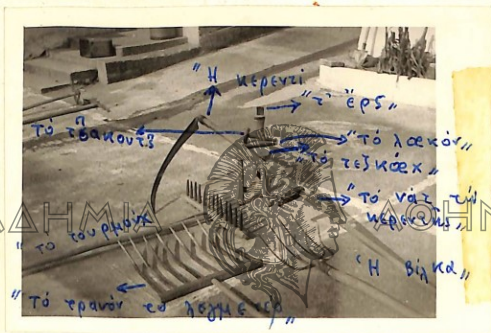 "Ἡ κερεντί
"τ' ἔρς„
τό τσ̌ακούτζ
"τό λακόν„
"τό τεζκιάχ
"τό νάτ τῆ
κερεντῆς„
"τό τουρμούχ
Ἡ βίλκα„
"Τό τρανόν τό
ΑΔΗΜΙΑ
ΑΘΗΝ